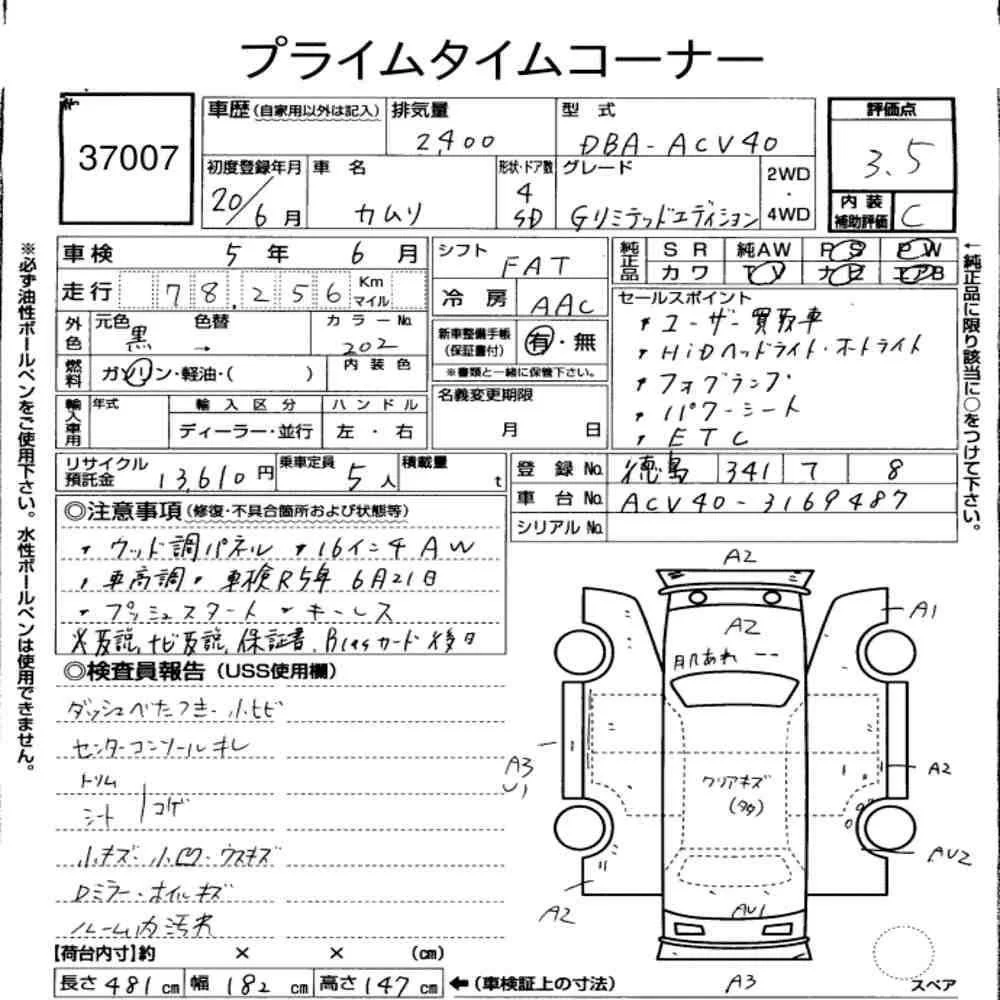 プライムタイムコーナー
37007
車歴(自家用以外は記入) 排気量 2,400 型式 DBA-ACV40
評価点 3.5
初度登録年月 20/6月 車名 カムリ 形状・ドア数 4 SD グレード Gリミテッドエディション 2WD・4WD
内装補助評価 C
車検 5年 6月 シフト FAT
純正品 SR 純AW PS PW
カワ TV ナビ エアB
走行 78,256 Km マイル 冷房 AAC
外色 元色 黒 色替 → カラーNo. 202
新車整備手帳(保証書付) 有・無
※書類と一緒に保管下さい。
燃料 ガソリン・軽油・( ) 内装色
名義変更期限 月 日
輸入車用 年式 輸入区分 ディーラー・並行 ハンドル 左・右
セールスポイント
・ユーザー買取車
・HiDヘッドライト・オートライト
・フォグランプ
・パワーシート
・ETC
リサイクル預託金 13,610円 乗車定員 5人 積載量 t
登録No. 徳島 341 7 8
車台No. ACV40-3169487
シリアルNo.
◎注意事項(修復・不具合箇所および状態等)
・ウッド調パネル ・16インチAW
・車高調・車検R5年6月21日
・プッシュスタート ・キーレス
※取説,ナビ取説,保証書,B'casカード後日
◎検査員報告(USS使用欄)
ダッシュべたつき・小ヒビ
センターコンソールキレ
トリム
シート コゲ
小キズ・小凹・ウスキズ
Dミラー・ホイルキズ
ルーム内汚れ
【荷台内寸】約 × × (cm)
長さ 481 cm 幅 182 cm 高さ 147 cm ←(車検証上の寸法)
※必ず油性ボールペンをご使用下さい。水性ボールペンは使用できません。
←純正品に限り該当に○をつけて下さい。
A2
A1
A2
飛石あれ
A3
U1
A2
クリアキズ
(多々)
AU2
A2
AU1
A3
スペア